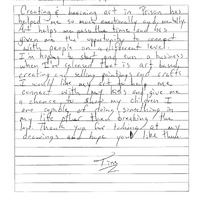 Creating & learning art in Prison has
helped me so much emotionally and mentally.
Art helps me pass the time and has
given me the opportunity to connect
with people on a different level.
I'm hoping to start and own a business
when I'm released that is art based
creating and selling paintings and crafts
I would like my art to help me
connect with my kids and give me
a chance to show my children I
am capable of doing something in
my life other than breaking the
law. Thank you for looking at my
drawings and hope you like them